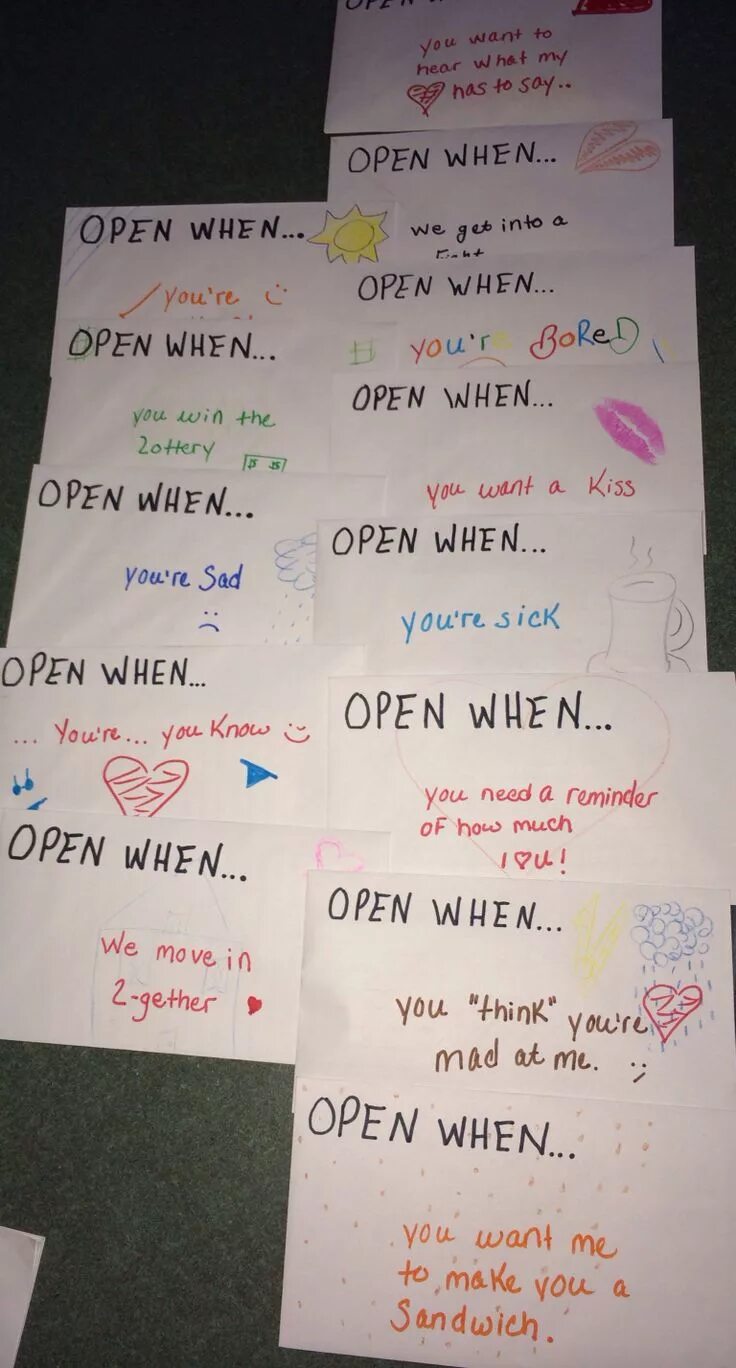 OPEN W
you want to
hear what my
has to say..
OPEN WHEN...
we get into a
OPEN WHEN...
you're
OPEN WHEN...
you're BOReD
OPEN WHEN...
you win the
Lottery
OPEN WHEN...
you want a Kiss
OPEN WHEN...
you're Sad
OPEN WHEN...
you're sick
OPEN WHEN...
... You're... you Know
OPEN WHEN...
you need a reminder
OF how much
I ♡ U!
OPEN WHEN...
We move in
2-gether
OPEN WHEN...
you "think" you're
mad at me.
OPEN WHEN...
you want me
to make you a
Sandwich.